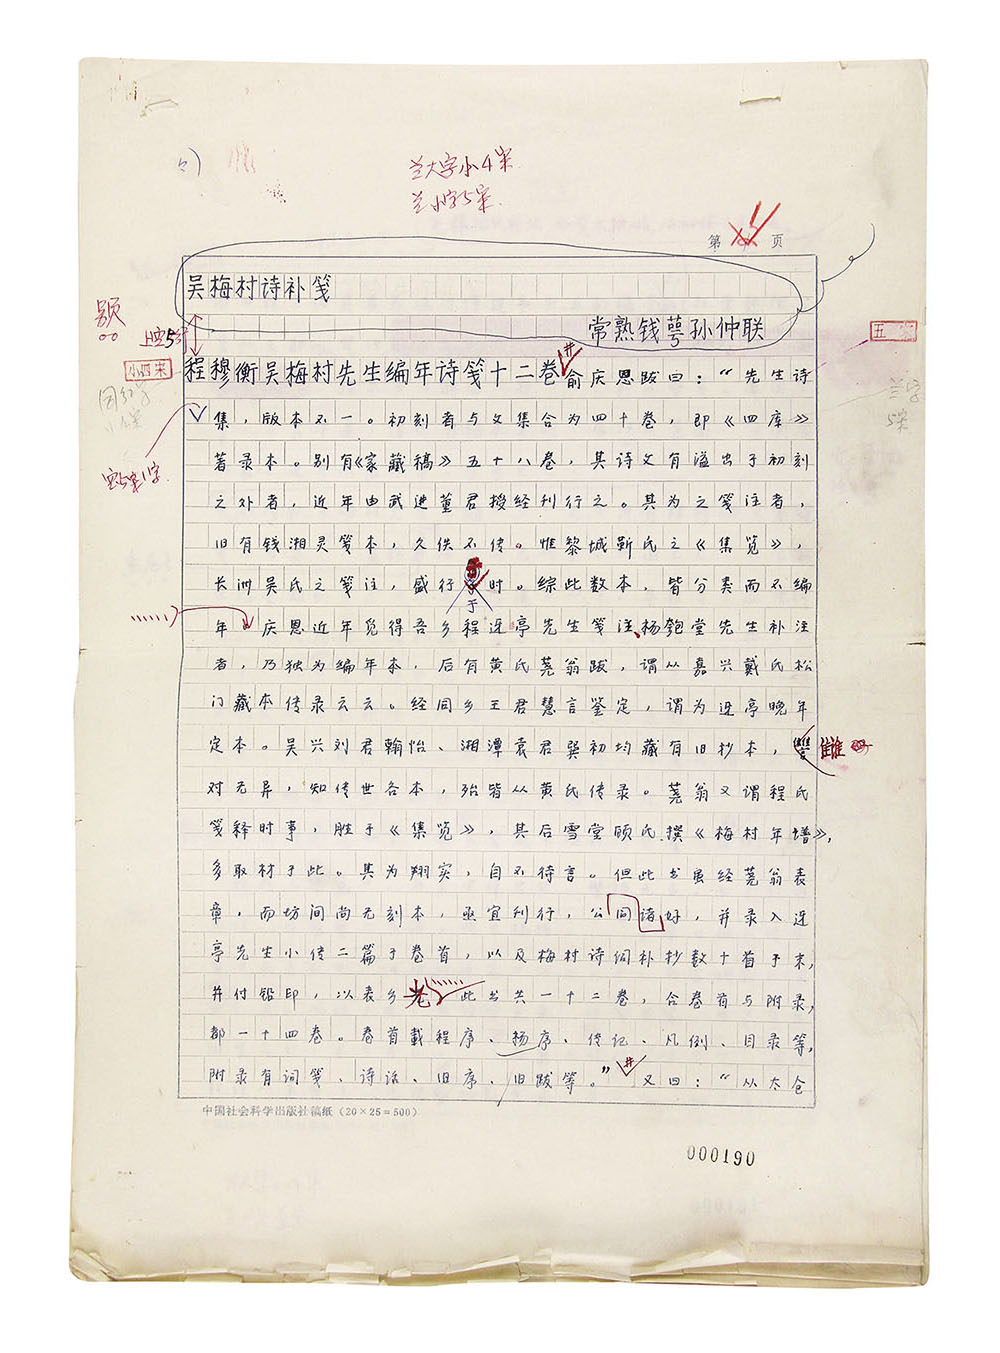 兰大字小4宋
兰小字5宋
第 页
吴梅村诗补笺
常熟钱萼孙仲联
题
上空5
小四宋
五宋
兰字
5宋
空5宋1字
程穆衡吴梅村先生编年诗笺十二卷 俞庆恩跋曰：“先生诗
集，版本不一。初刻者与文集合为四十卷，即《四库》
著录本。别有《家藏稿》五十八卷，其诗文有溢出于初刻
之外者，近年由武进董君授经刊行之。其为之笺注者，
旧有钱湘灵笺本，久佚不传。惟黎城靳氏之《集览》，
长洲吴氏之笺注，盛行于时。综此数本，皆分类而不编
年……庆恩近年觅得吾乡程迓亭先生笺注、杨匏堂先生补注
者，乃独为编年本，后有黄氏荛翁跋，谓从嘉兴戴氏松
门藏本传录云云。经同乡王君慧言鉴定，谓为迓亭晚年
定本。吴兴刘君翰怡、湘潭袁君巽初均藏有旧抄本，雠
对无异，知传世各本，殆皆从黄氏传录。荛翁又谓程氏
笺释时事，胜于《集览》，其后雪堂顾氏撰《梅村年谱》，
多取材于此。其为翔实，自不待言。但此书虽经荛翁表
章，而坊间尚无刻本，亟宜刊行，公同诸好，并录入迓
亭先生小传二篇于卷首，以及梅村诗词补抄数十首于末，
并付铅印，以表乡先……此书共一十二卷，合卷首与附录，
都一十四卷。卷首载程序、杨序、传记、凡例、目录等，
附录有词笺、诗话、旧序、旧跋等。” 又曰：“从太仓
中国社会科学出版社稿纸（20×25=500）
000190